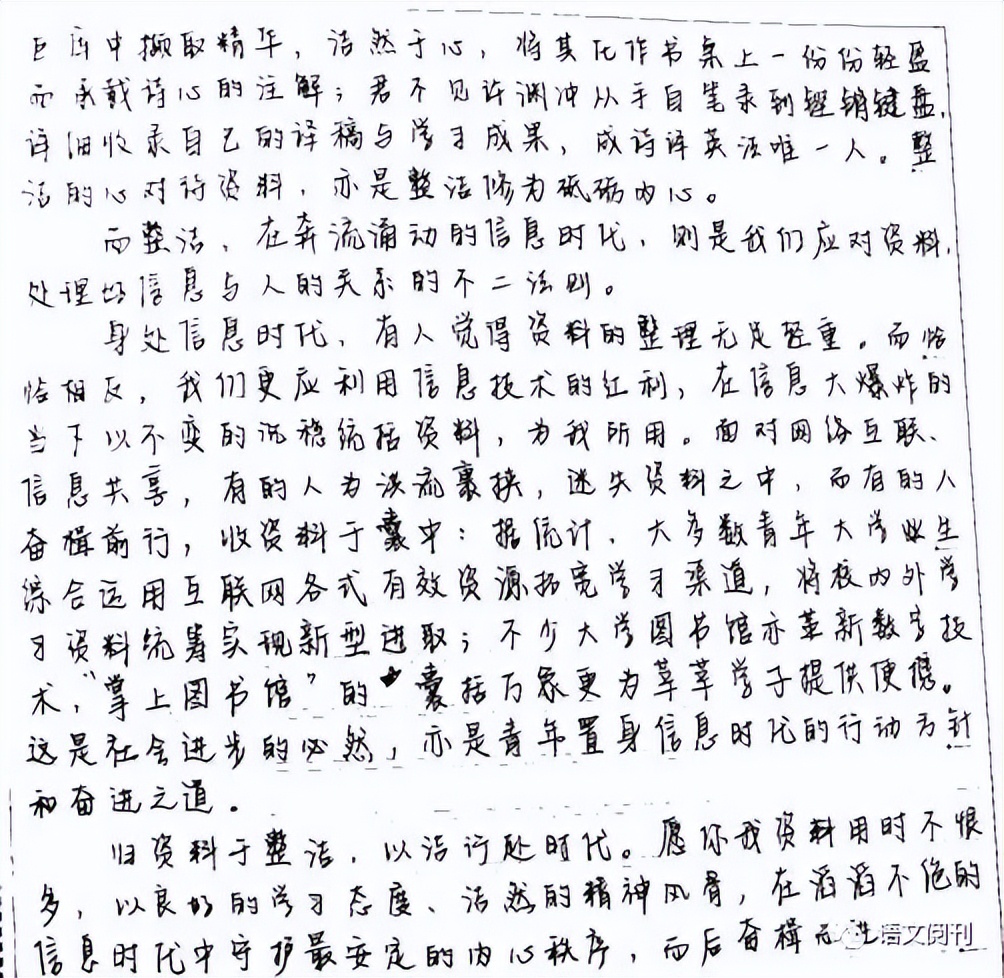 巨库中撷取精华，洁然于心，将其化作书桌上一份份轻盈
而承载诗心的注解；君不见许渊冲从手自笔录到铿锵键盘，
详细收录自己的译稿与学习成果，成诗译英法唯一人。整
洁的心对待资料，亦是整洁修为砥砺内心。
而整洁，在奔流涌动的信息时代，则是我们应对资料，
处理好信息与人的关系的不二法则。
身处信息时代，有人觉得资料的整理无足轻重。而恰
恰相反，我们更应利用信息技术的红利，在信息大爆炸的
当下以不变的沉稳统括资料，为我所用。面对网络互联、
信息共享，有的人为洪流裹挟，迷失资料之中，而有的人
奋楫前行，收资料于囊中：据统计，大多数青年大学生
综合运用互联网各式有效资源拓宽学习渠道，将校内外学
习资料统筹实现新型进取；不少大学图书馆亦革新数字技
术，“掌上图书馆”的囊括万象更为莘莘学子提供便携。
这是社会进步的必然，亦是青年置身信息时代的行动方针
和奋进之道。
归资料于整洁，以洁行处时代。愿你我资料用时不恨
多，以良好的学习态度、洁然的精神风骨，在滔滔不绝的
信息时代中守护最安定的内心秩序，而后奋楫而进
语文阅刊